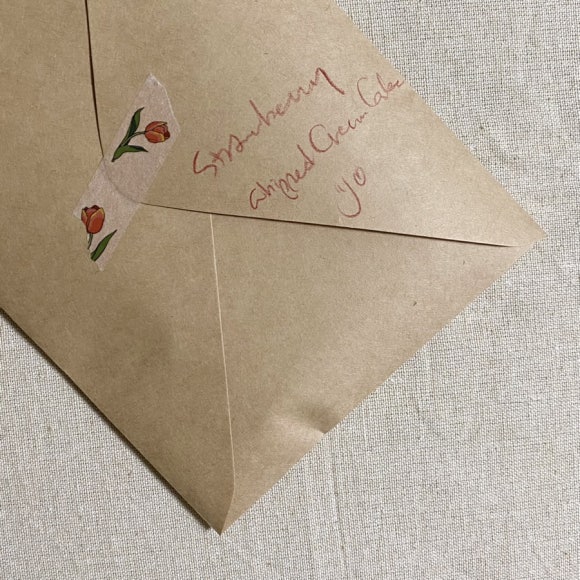 Strawberry
Whipped Cream Cake
yo